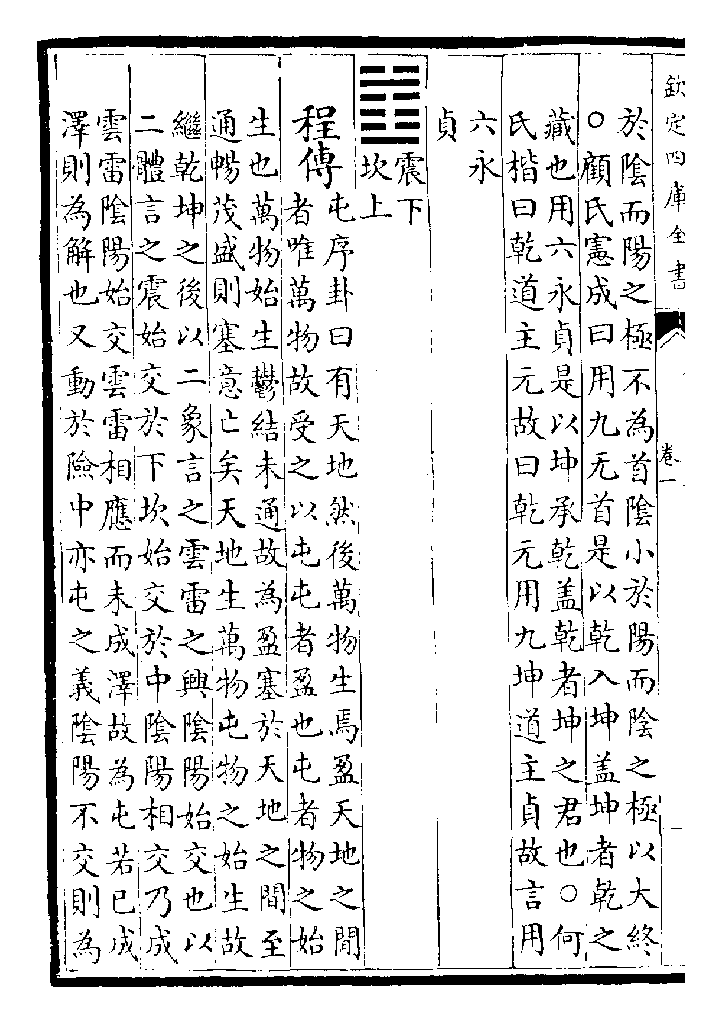 欽定四庫全書
卷一
於陰而陽之極不為首陰小於陽而陰之極以大終
○顧氏憲成曰用九无首是以乾入坤盖坤者乾之
藏也用六永貞是以坤承乾盖乾者坤之君也○何
氏楷曰乾道主元故曰乾元用九坤道主貞故言用
六永
貞
震下
坎上
程傳
屯序卦曰有天地然後萬物生焉盈天地之間
者唯萬物故受之以屯屯者盈也屯者物之始
生也萬物始生鬱結未通故為盈塞於天地之間至
通暢茂盛則塞意亡矣天地生萬物屯物之始生故
繼乾坤之後以二象言之雲雷之興陰陽始交也以
二體言之震始交於下坎始交於中陰陽相交乃成
雲雷陰陽始交雲雷相應而未成澤故為屯若已成
澤則為解也又動於險中亦屯之義陰陽不交則為